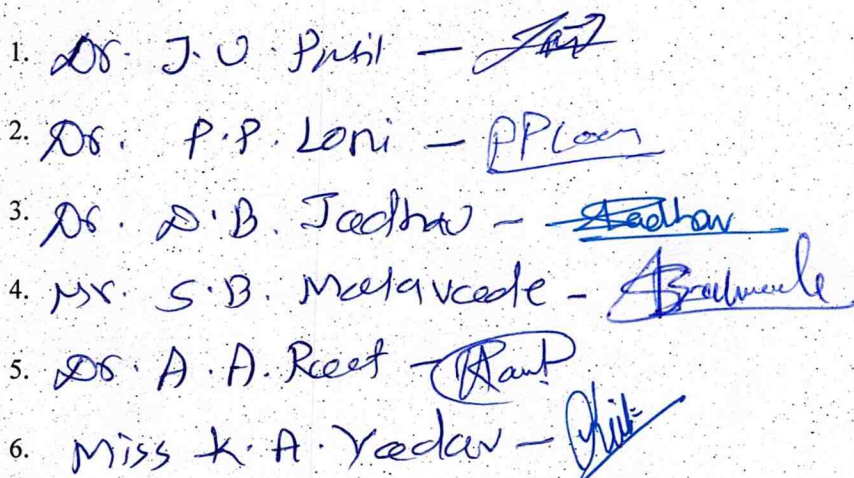 1. Dr. J. U. Patil –
2. Dr. P. P. Loni – PPLoni
3. Dr. D. B. Jadhav – Jadhav
4. Mr. S. B. Malavade –
5. Dr. A. A. Raut – AARaut
6. Miss K. A. Yadav –